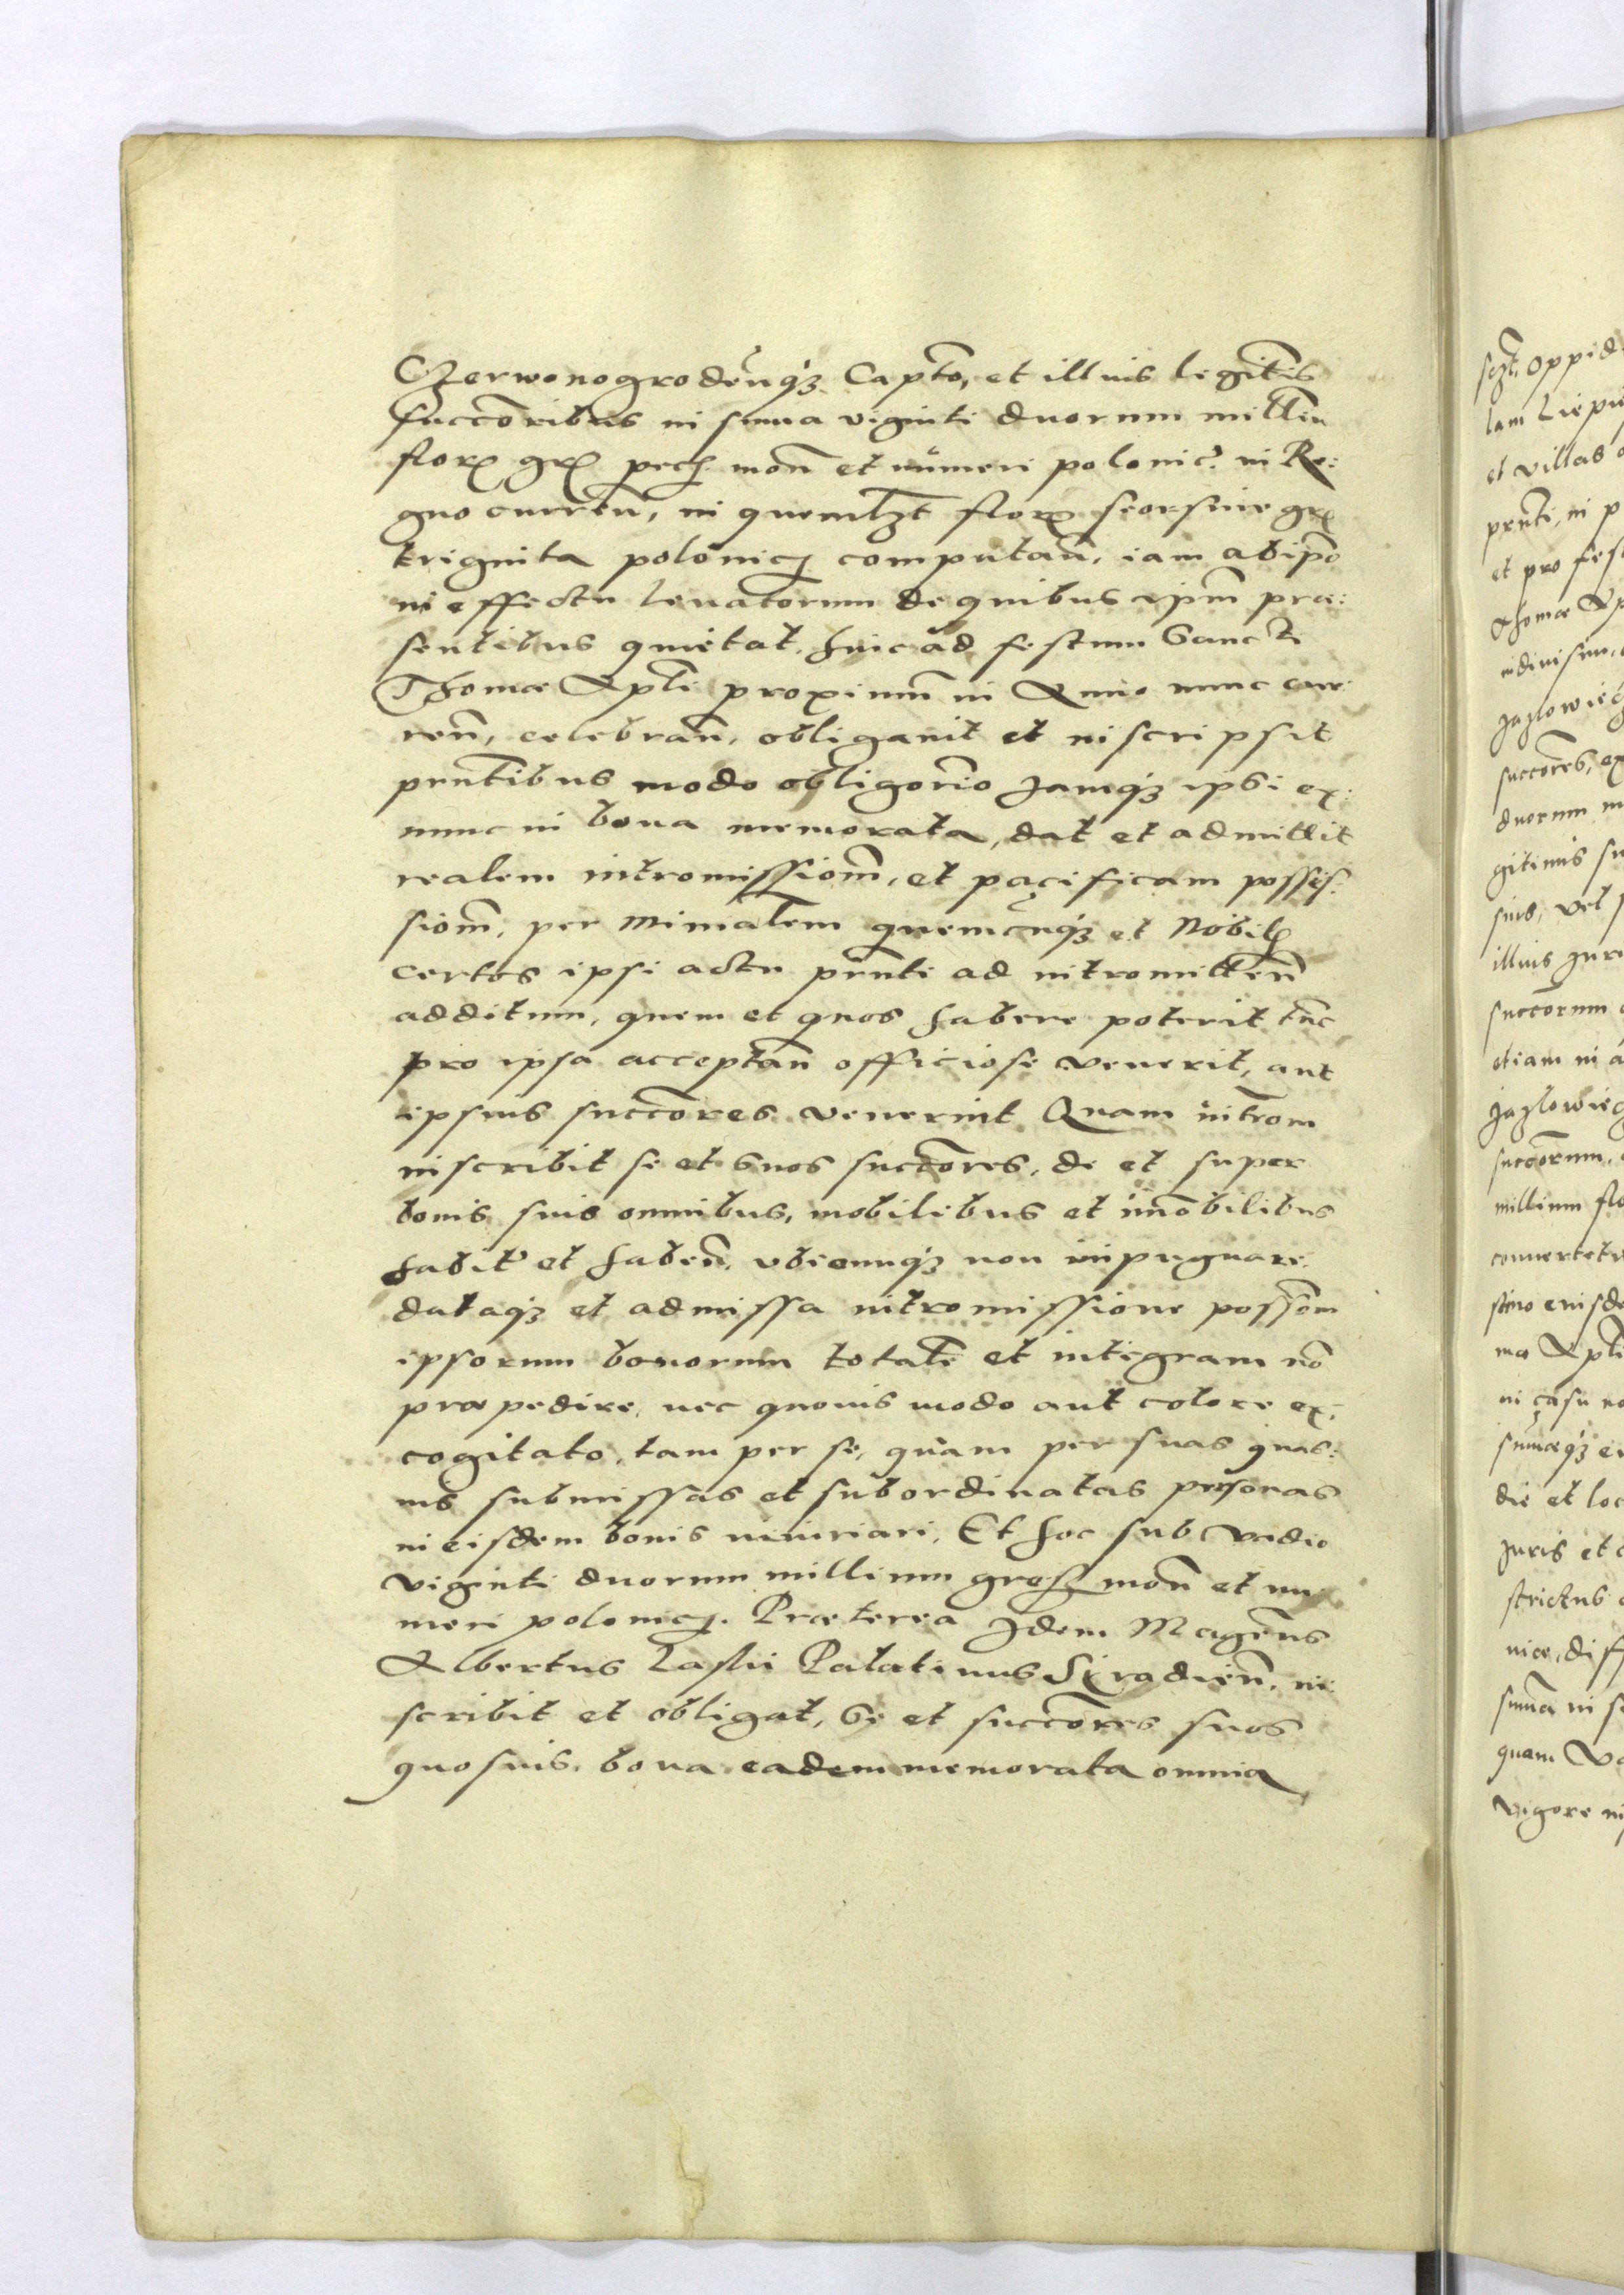 Czerwonogrodeñq3 Capto, et illius legitis
succoribus in suma viginti duorum millin
flor gr pec mon et numeri polonic. in Re:
gno curren, in quemlzt flor seorsive gr
triginta polonic computan, iam ab ipo
in effectu levatorum de quibus ipm præ:
sentibus quietat. hinc ad festum Sancti
Thomæ Apti proximum in Anno nunc cur:
ren, celebran, obligavit et inscripsit
prntibus modo obligorio Jamq3 ipsi ex:
nunc in bona memorata, dat et admittit
realem intromissiom, et pacificam posses:
siom, per Minialem quemcunq3 et Nobil
certos ipsi actu prnti ad intromitten
additum, quem et quos habere poterit tnc
pro ipsa acceptan officiose venerit, aut
ipsius succores venerint Quam introm
inscribit se et suos succores, de et super
bonis suis omnibus, mobilibus et imobilibus
habit et haben, ubicunq3 non impugnare.
dataq3 et admissa intromissione possom
ipsorum bonorum totale et integram no
præpedire, nec quovis modo aut colore ex:
cogitato, tam per se, quam per suas quas:
vis submissas et subordinatas personas
in eisdem bonis iniuriari, Et hoc sub vadio
viginti duorum millium gros mon et nu
meri polonic. Præterea Idem Magcus
Albertus Laski Palatinus Siradien, in
scribit et obligat, se et succores suos
quosvis, bona eadem memorata omnia
sczt, oppid
lam Liepi
et villas
prnti, in p
et pro fes
Thomæ Ap
indivisim,
Jazlowiec
succores, ex
duorum m
gitimis su
suis, vel
illius Juri
succorum
etiam in a
Jazlowiec
succorum,
millium flo
convertet
simo eiusde
mæ Apti
in casu no
sumæq3 e
die et loc
Juris et
strictus
nice, diff
suma in s
quam Va
vigore in